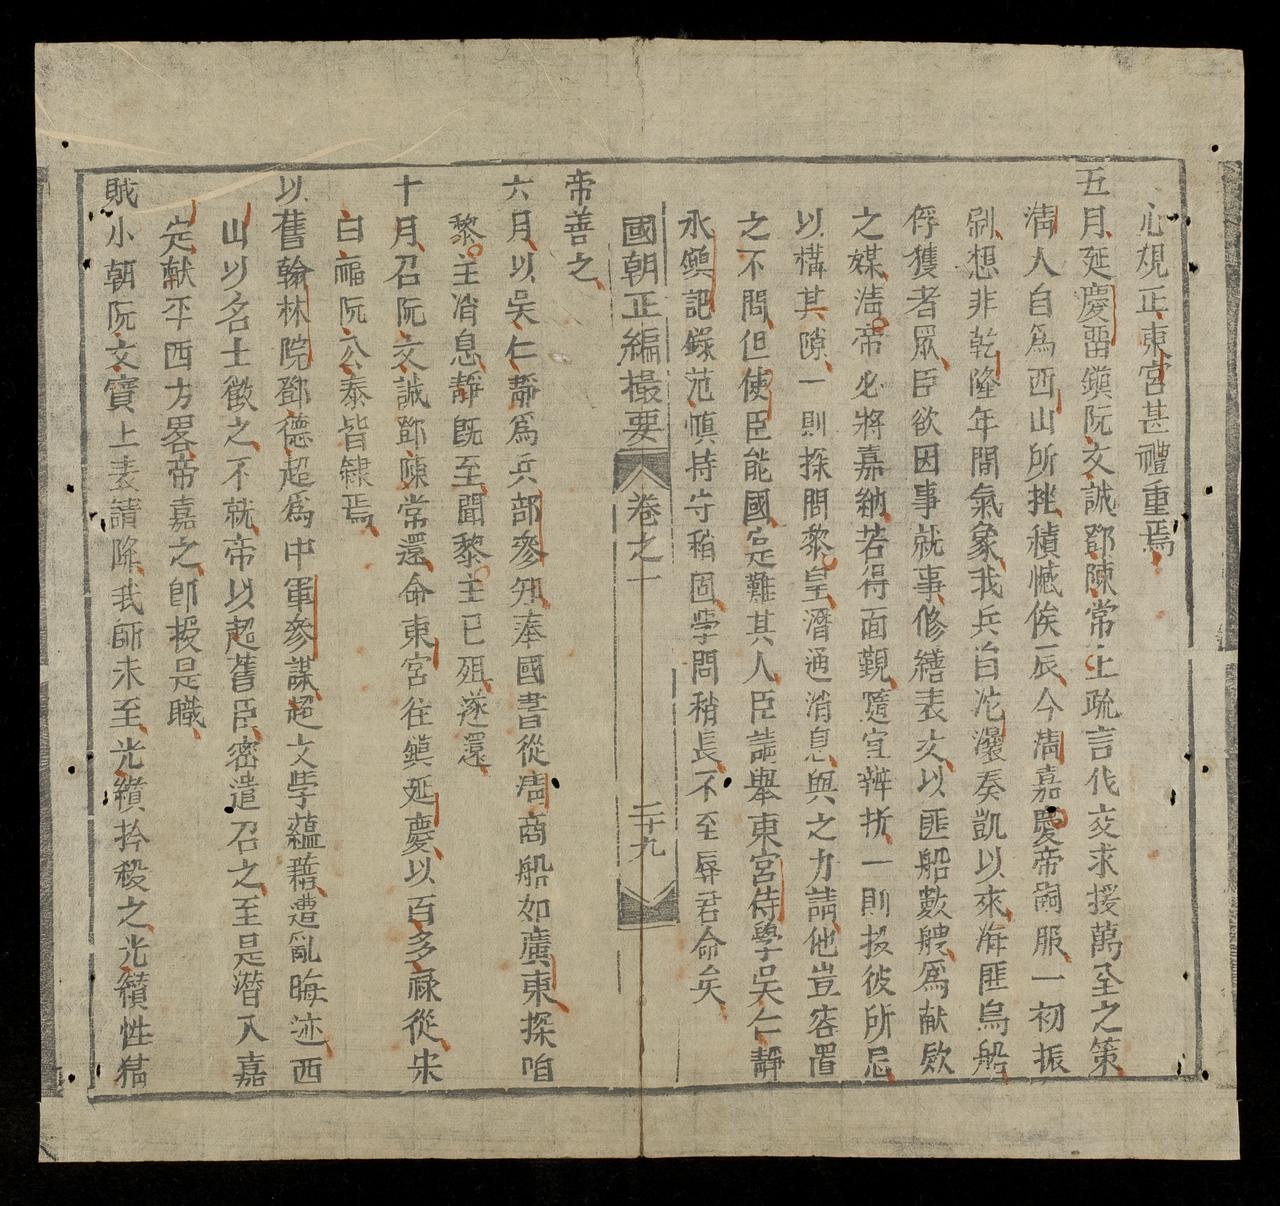 心規正東宮甚禮重焉
五月延慶畱鎮阮文誠鄧陳常上疏言伐交求援萬全之策
清人自爲西山所挫積憾俟辰今清嘉慶帝嗣服一初振
刷想非乾隆年間氣象我兵自沱㶞奏凱以來海匪烏船
俘獲者眾臣欲因事就事修繕表文以匪船數艘爲献欵
之媒清帝必將嘉納若得面覲隨宜辨折一則投彼所忌
以構其隙一則探問黎皇潛通消息與之力請他豈容置
之不問但使臣能國寔難其人臣請舉東宮侍學吴仁靜
永鎮記錄范慎持守稍固學問稍長不至辱君命矣
國朝正編撮要 卷之一 二十九
帝善之
六月以吴仁靜爲兵部參知奉國書從清商船如廣東探咱
黎主消息靜既至聞黎主已殂遂還
十月召阮文誠鄧陳常還命東宮徃鎮延慶以百多禄從宋
白福阮公泰皆隸焉
以舊翰林院鄧德超爲中軍參謀超文學蘊藉遭亂晦迹西
山以名士徵之不就帝以超舊臣密遣召之至是潛入嘉
定献平西方畧帝嘉之即授是職
賊小朝阮文寶上表請降我師未至光纘拎殺之光纘性猜